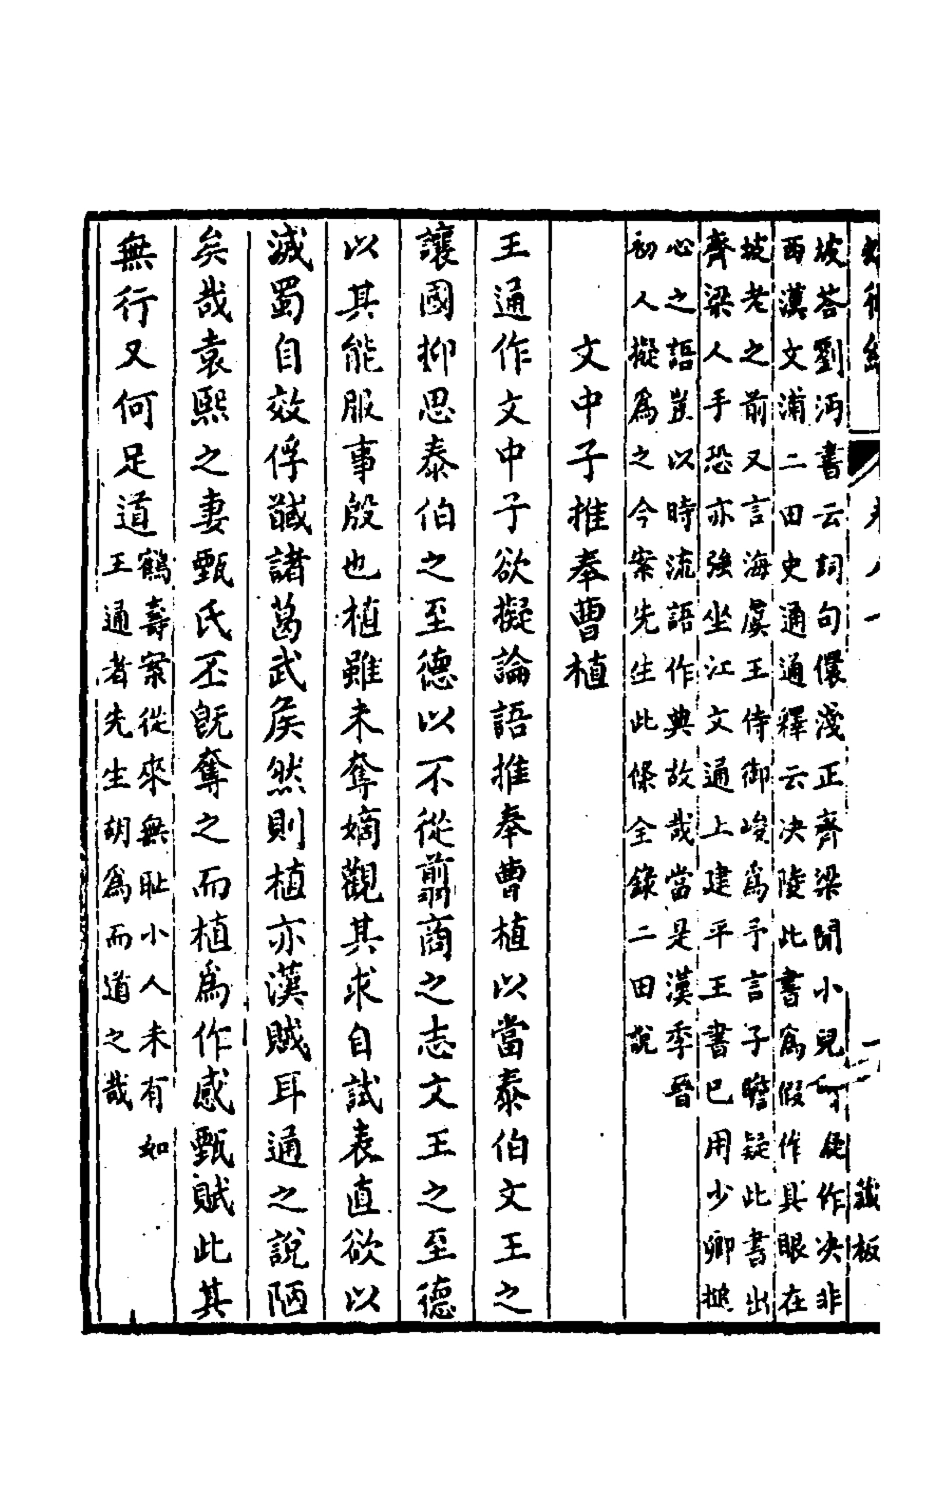 坡荅劉沔書云詞句儇淺正齊梁閒小兒所作决非
西漢文浦二田史通通釋云决陵此書爲假作具眼在
坡老之前又言海虞王侍御峻爲予言子瞻疑此書出
齊梁人手恐亦強坐江文通上建平王書已用少卿搥
心之語豈以時流語作典故哉當是漢季晉
初人擬爲之今案先生此條全錄二田說
文中子推奉曹植
王通作文中子欲擬論語推奉曹植以當泰伯文王之
讓國抑思泰伯之至德以不從翦商之志文王之至德
以其能服事殷也植雖未奪嫡觀其求自試表直欲以
滅蜀自效俘馘諸葛武矦然則植亦漢賊耳通之說陋
矣哉袁熙之妻甄氏丕旣奪之而植爲作感甄賦此其
無行又何足道
鶴壽案從來無耻小人未有如
王通者先生胡爲而道之哉
藏板